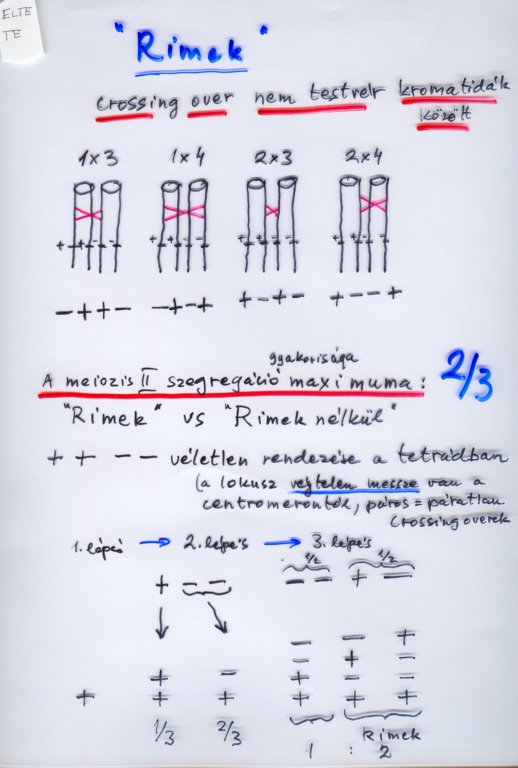 ELTE
TE
"Rimek"
crossing over nem testvér kromatidák
között
1x3 1x4 2x3 2x4
+ + - - + + - - + + - - + + - -
- + + - - + - + + - + - + - - +
gyakorisága
A meiozis II szegregáció maximuma: 2/3
"Rimek" vs "Rimek nélkül"
+ + - - véletlen rendezése a tetrádban
(a lokusz végtelen messze van a
centromerontók, páros = páratlan
crossing overek
1. lépés → 2. lépés → 3. lépés
1/2 1/2
+ - - - - + -
- - +
- + -
+ - + - -
+ + + + + +
1/3 2/3 Rimek
1 : 2